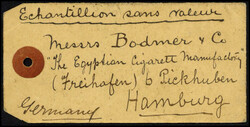 Echantillion sans valeur
Messrs Bodmer & Co
"The Egyptian Cigarett Manufactory"
(Freihafen) 6 Pickhuben
Hamburg
Germany